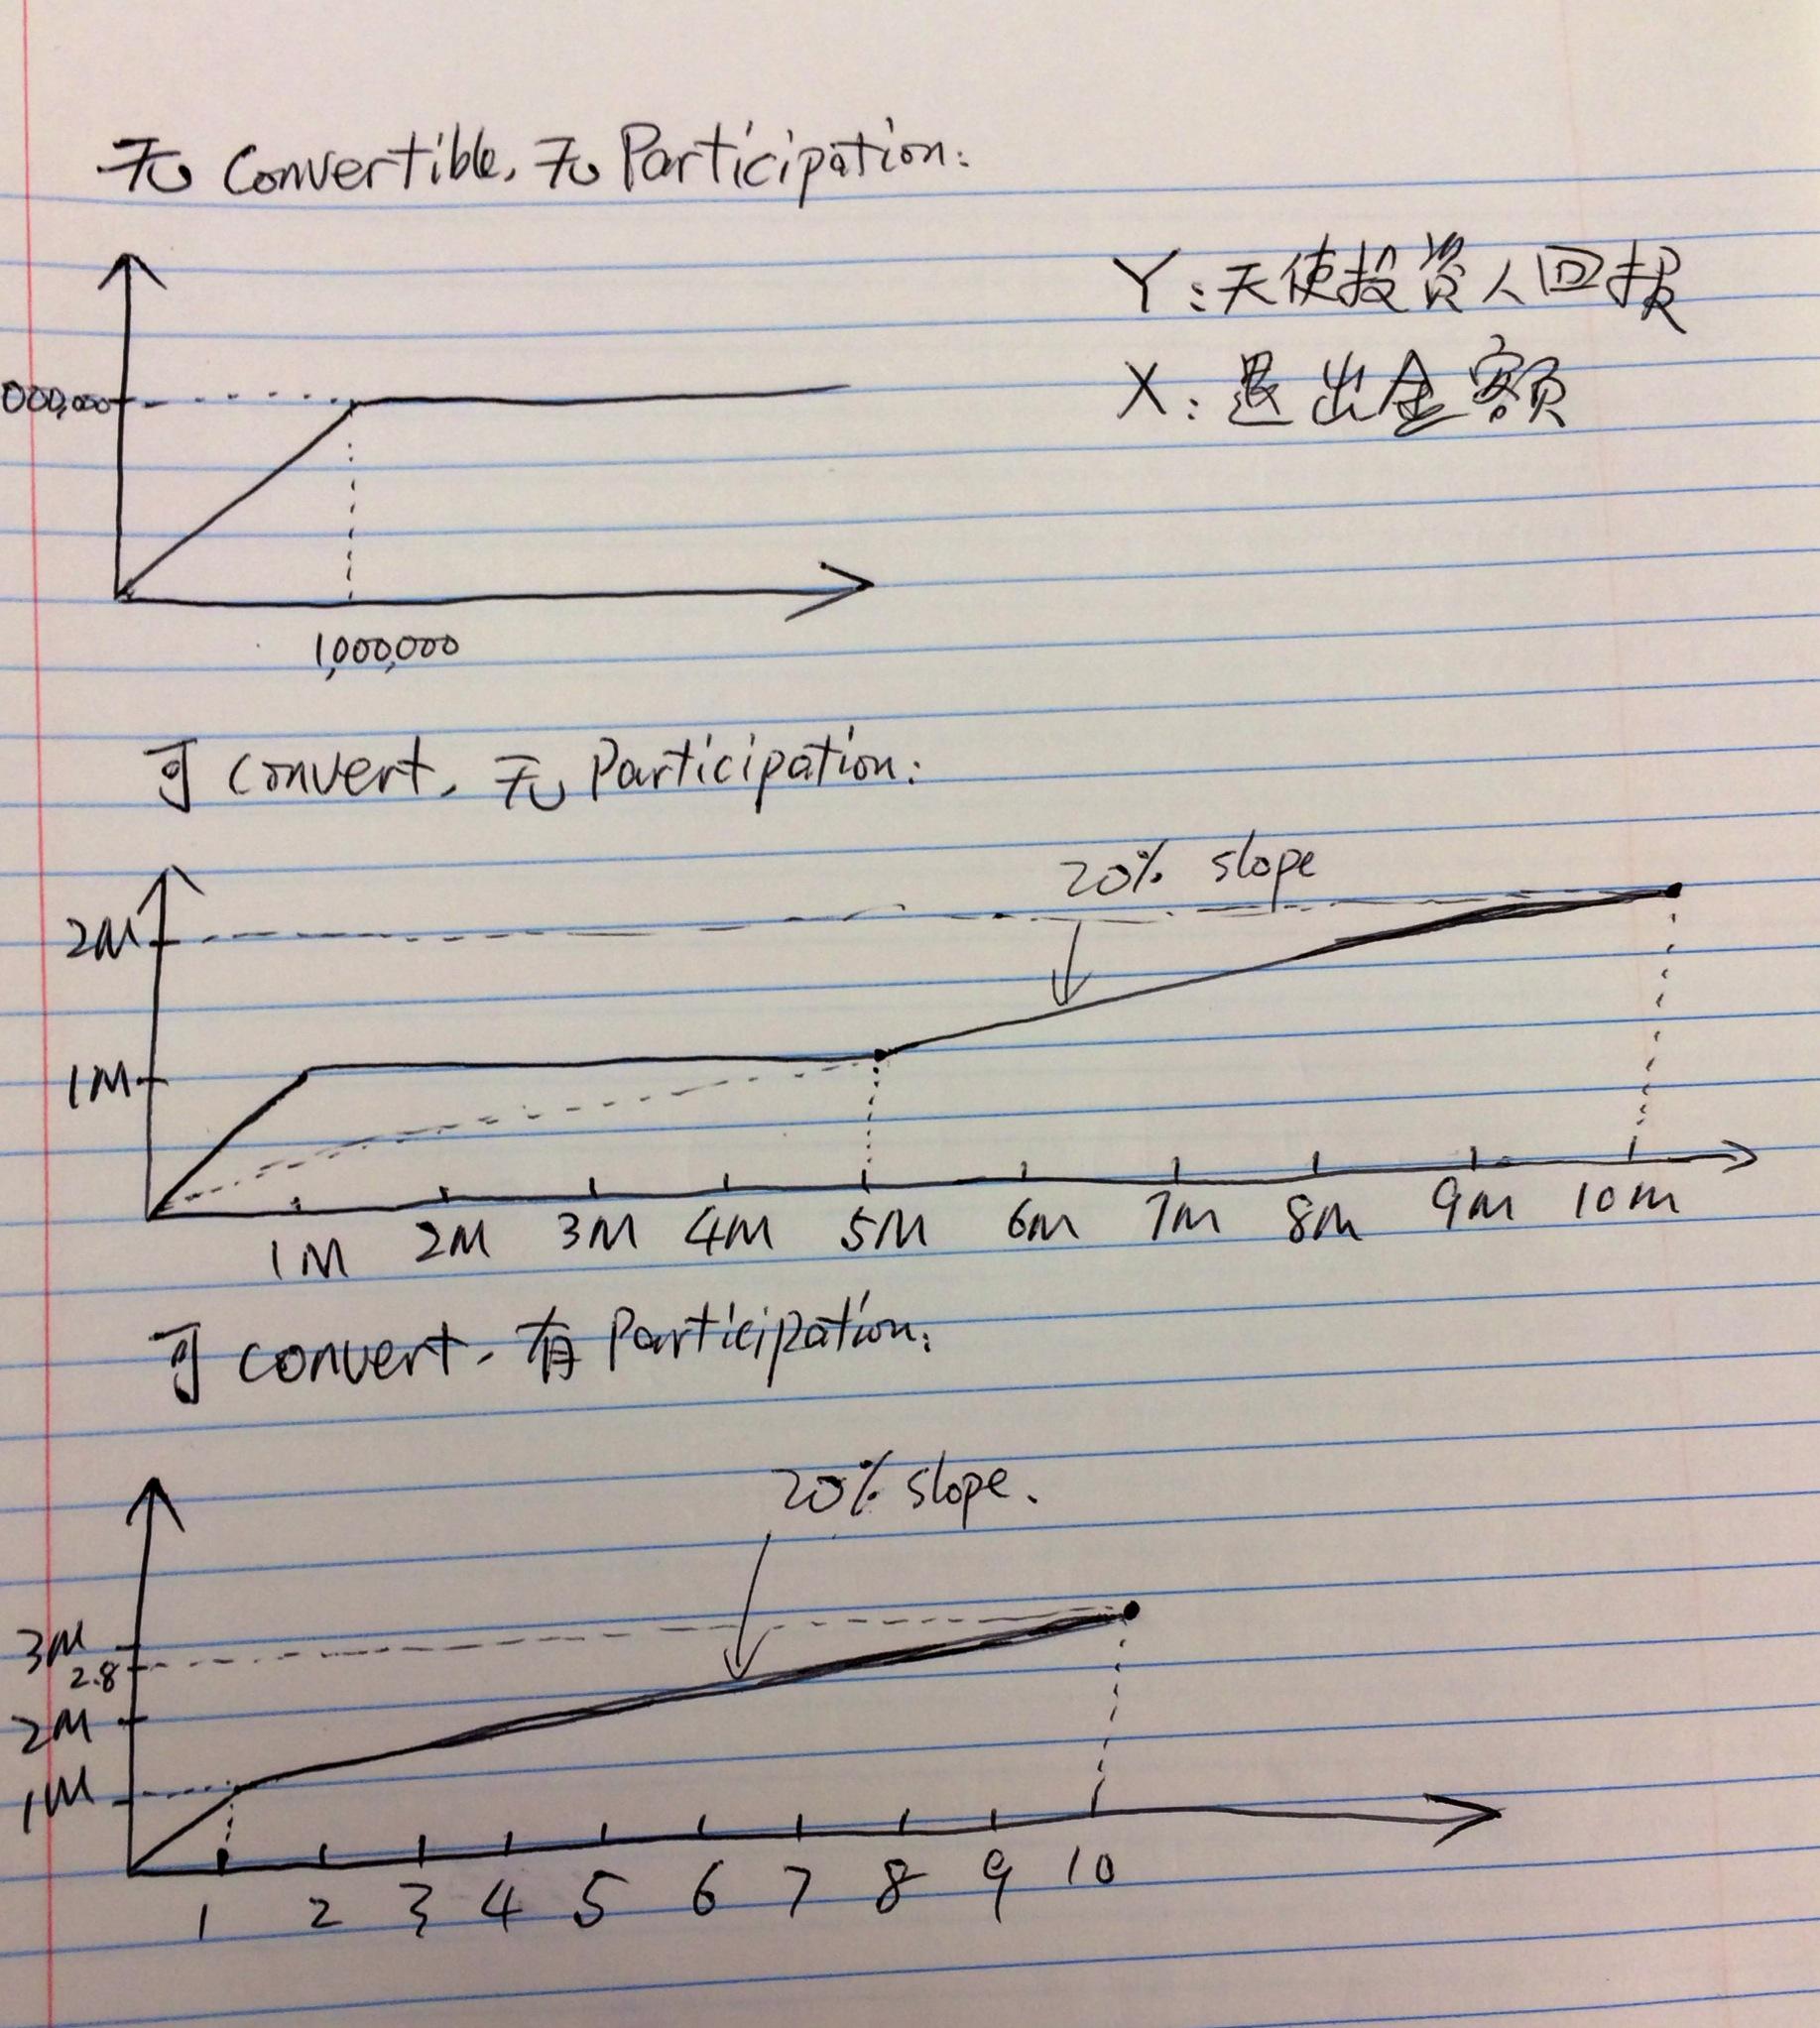 无 Convertible, 无 Participation:
Y: 天使投资人回报
X: 退出金额
000,000
1,000,000
可 convert, 无 Participation:
20% slope
2M
1M
1M 2M 3M 4M 5M 6M 7M 8M 9M 10M
可 convert, 有 Participation:
20% slope.
3M
2.8
2M
1M
1 2 3 4 5 6 7 8 9 10